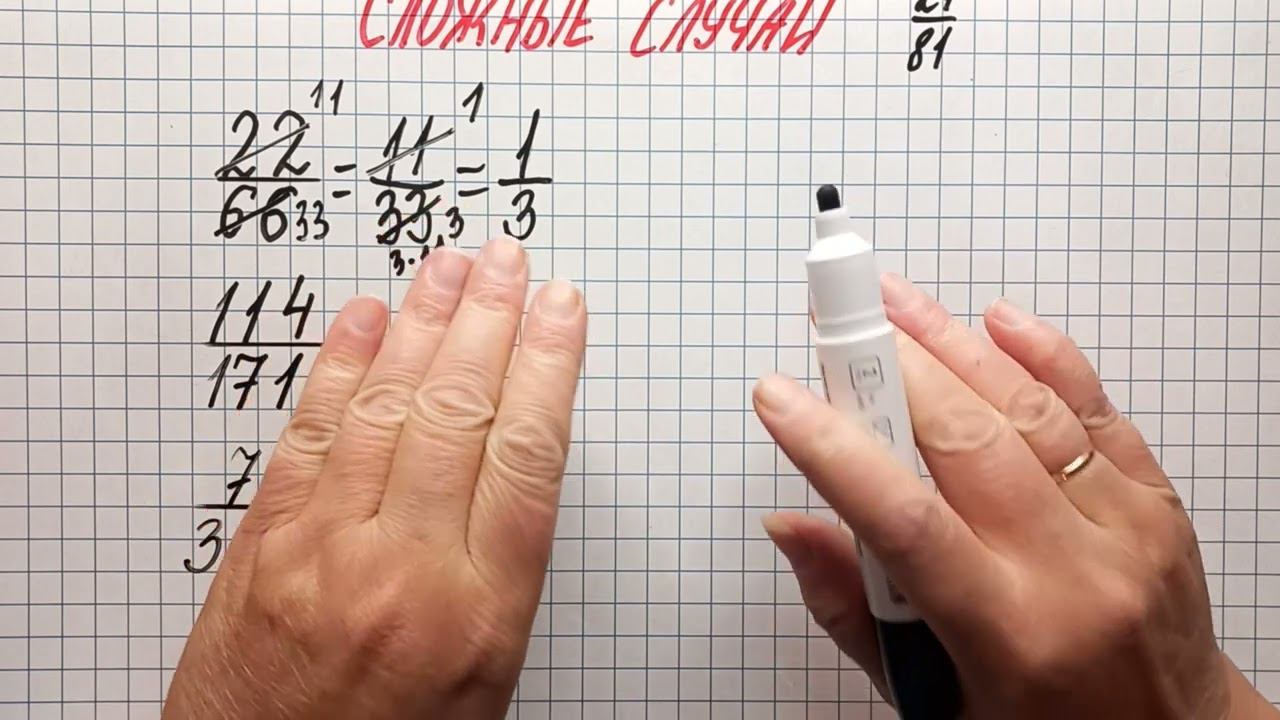 СЛОЖНЫЕ СЛУЧАИ
81
22 11 11 1 1
— = — = —
66 33 33 3 3
3·
114
171
7
3